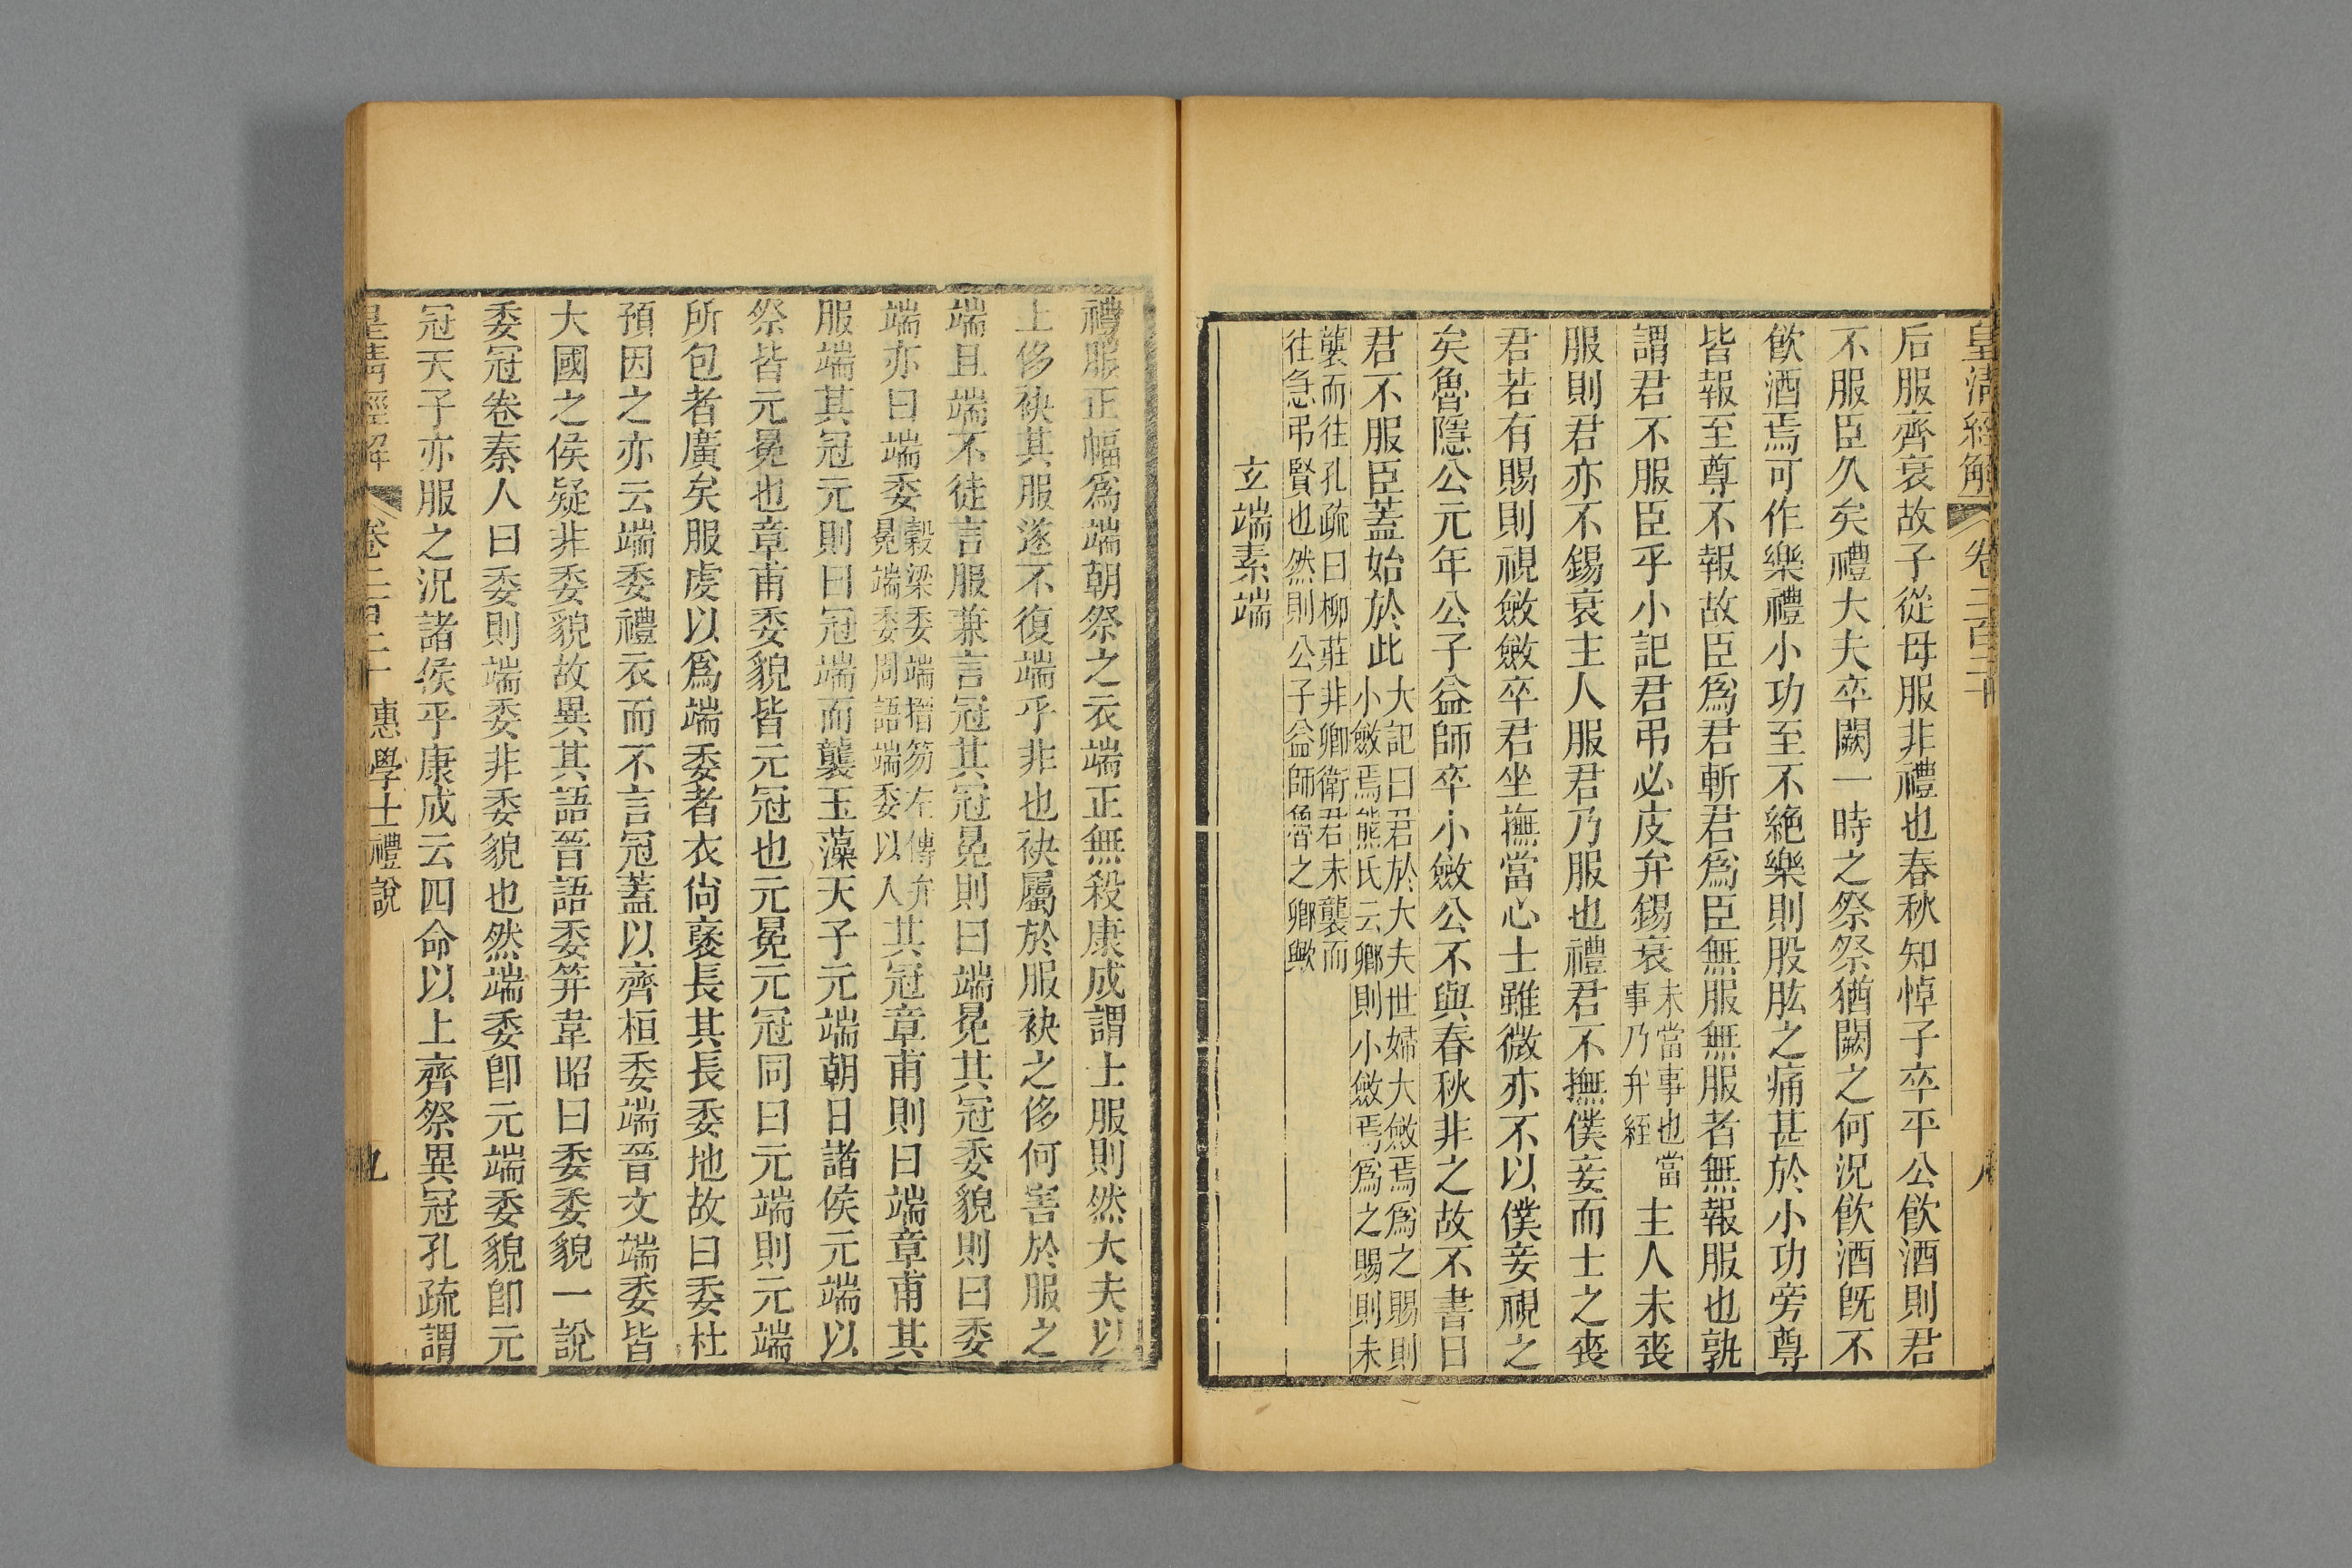 皇清經解 卷二百二十 八
后服齊衰故子從母服非禮也春秋知悼子卒平公飮酒則君
不服臣久矣禮大夫卒闕一時之祭祭猶闕之何況飮酒旣不
飮酒焉可作樂禮小功至不絕樂則股肱之痛甚於小功旁尊
皆報至尊不報故臣爲君斬君爲臣無服無服者無報服也孰
謂君不服臣乎小記君弔必皮弁錫衰未當事也當事乃弁絰主人未喪
服則君亦不錫衰主人服君乃服也禮君不撫僕妾而士之喪
君若有賜則視斂斂卒君坐撫當心士雖微亦不以僕妾視之
矣魯隱公元年公子益師卒小斂公不與春秋非之故不書日
君不服臣蓋始於此大記曰君於大夫世婦大斂焉爲之賜則小斂焉熊氏云鄉則小斂焉爲之賜則未
襲而往孔疏曰柳莊非卿衛君未襲而往急弔賢也然則公子益師魯之卿歟
玄端素端
禮服正幅爲端朝祭之衣端正無殺康成謂上服則然大夫以
上侈袂其服遂不復端乎非也袂屬於服袂之侈何害於服之
端且端不徒言服兼言冠其冠冕則曰端冕其冠委貌則曰委
端亦曰端委穀梁委端搢笏左傳弁冕端委周語端委以入其冠章甫則曰端章甫其
服端其冠元則曰冠端而襲玉藻天子元端朝日諸侯元端以
祭皆元冕也章甫委貌皆元冠也元冕元冠同曰元端則元端
所包者廣矣服虔以爲端委者衣尙襃長其長委地故曰委杜
預因之亦云端委禮衣而不言冠蓋以齊桓委端晉文端委皆
大國之侯疑非委貌故異其語晉語委笄韋昭曰委委貌一說
委冠卷秦人曰委則端委非委貌也然端委卽元端委貌卽元
冠天子亦服之況諸侯乎康成云四命以上齊祭異冠孔疏謂
皇清經解 卷二百二十 惠學士禮說 九